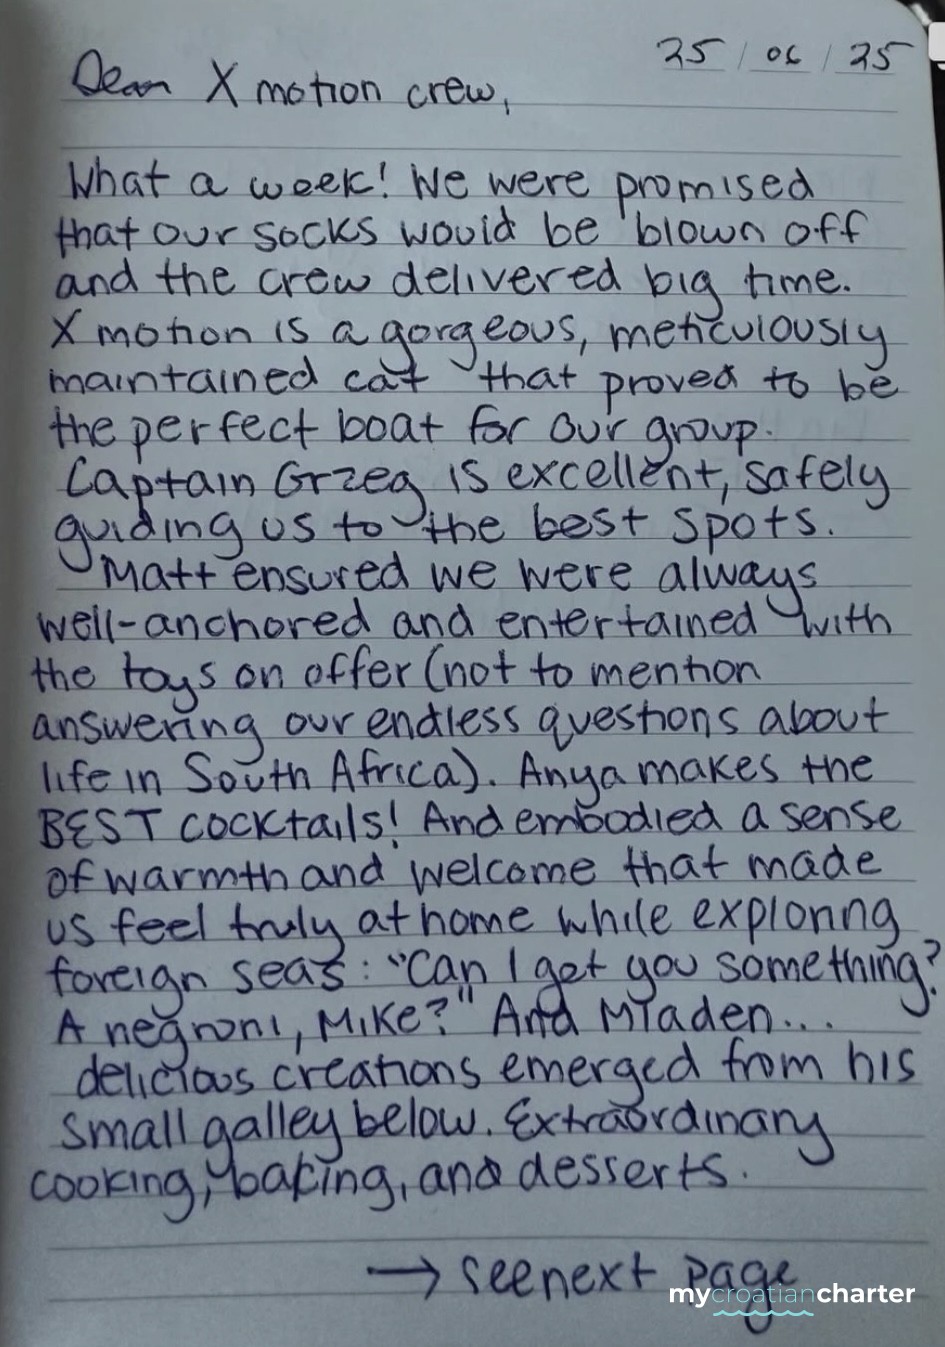 25/06/25
Dear X motion crew,
What a week! We were promised
that our socks would be blown off
and the crew delivered big time.
X motion is a gorgeous, meticulously
maintained cat that proved to be
the perfect boat for our group.
Captain Grzeg is excellent, safely
guiding us to the best spots.
Matt ensured we were always
well-anchored and entertained with
the toys on offer (not to mention
answering our endless questions about
life in South Africa). Anya makes the
BEST cocktails! And embodied a sense
of warmth and welcome that made
us feel truly at home while exploring
foreign seas: "Can I get you something?
A negroni, Mike?" And Mladen...
delicious creations emerged from his
small galley below. Extraordinary
cooking, baking, and desserts.
→ see next page
mycroatiancharter